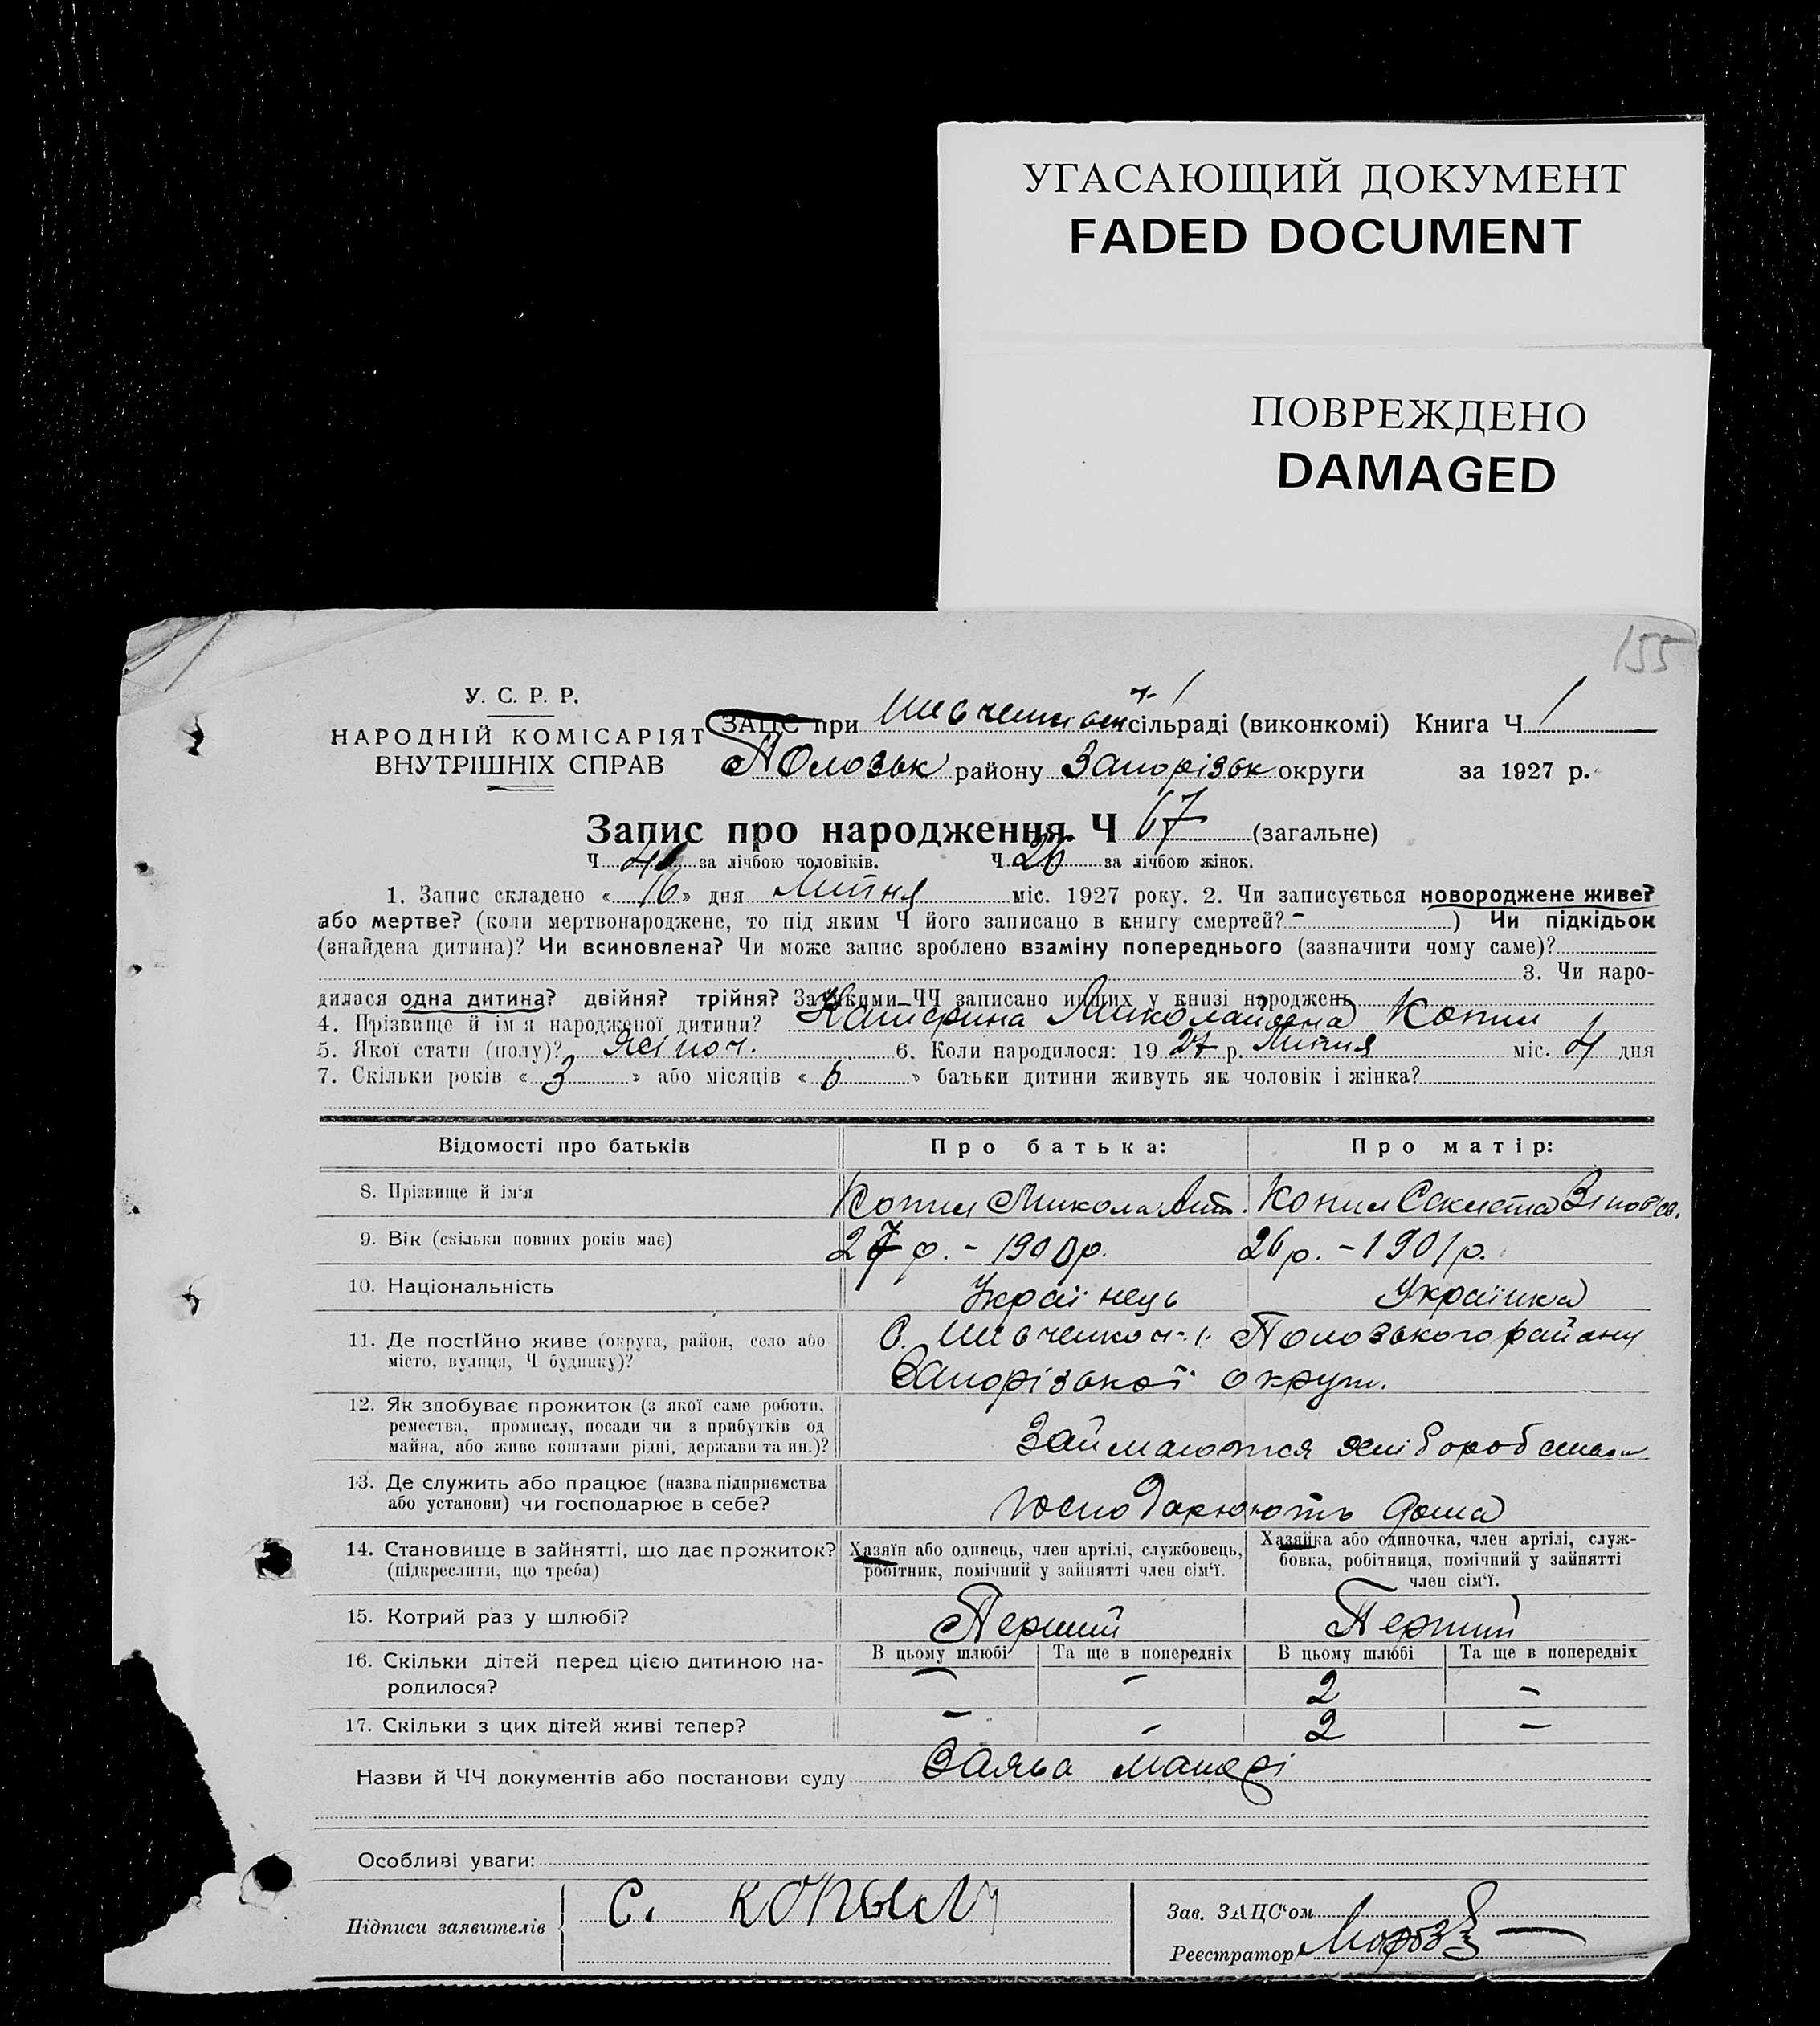 УГАСАЮЩИЙ ДОКУМЕНТ
FADED DOCUMENT
ПОВРЕЖДЕНО
DAMAGED
155
У. С. Р. Р.
НАРОДНІЙ КОМІСАРІЯТ
ВНУТРІШНІХ СПРАВ
ЗАЦС при Шевченківській ч. 1 сільраді (виконкомі) Книга Ч 1
Полозьк району Запорізьк округи за 1927 р.
Запис про народження Ч 67 (загальне)
Ч за лічбою чоловіків. Ч 26 за лічбою жінок.
1. Запис складено «16» дня Липня міс. 1927 року. 2. Чи записується новороджене живе?
або мертве? (коли мертвонароджене, то під яким Ч його записано в книгу смертей? - ) Чи підкідьок
(знайдена дитина)? Чи всиновлена? Чи може запис зроблено взаміну попереднього (зазначити чому саме)?
3. Чи наро-
дилася одна дитина? двійня? трійня? За якими ЧЧ записано инших у книзі народжень
4. Прізвище й ім'я народженої дитини? Катерина Миколаївна Копил
5. Якої стати (полу)? Жіноч. 6. Коли народилося: 1927 р. Липня міс. 4 дня
7. Скільки років «3» або місяців «6» батьки дитини живуть як чоловік і жінка?
Відомості про батьків Про батька: Про матір:
8. Прізвище й ім'я Копил Микола Ант. Копил Секлета
9. Вік (скільки повних років має) 27 р. - 1900 р. 26 р. - 1901 р.
10. Національність Українець Українка
11. Де постійно живе (округа, район, село або С. Шевченко ч. 1. Полозького району
місто, вулиця, Ч будинку)? Запорізької округи.
12. Як здобуває прожиток (з якої саме роботи,
ремества, промислу, посади чи з прибутків од
майна, або живе коштами рідні, держави та ин.)? Займаються хліборобством
13. Де служить або працює (назва підприємства
або установи) чи господарює в себе? Господарюють дома
14. Становище в зайнятті, що дає прожиток? Хазяїн або одинець, член артілі, службовець, Хазяйка або одиночка, член артілі, служ-
(підкреслити, що треба) робітник, помічний у зайнятті член сім'ї. бовка, робітниця, помічний у зайнятті
член сім'ї.
15. Котрий раз у шлюбі? Перший Перший
16. Скільки дітей перед цією дитиною на- В цьому шлюбі Та ще в попередніх В цьому шлюбі Та ще в попередніх
родилося? - - 2 -
17. Скільки з цих дітей живі тепер? - - 2 -
Назви й ЧЧ документів або постанови суду Заява матері
Особливі уваги:
Підписи заявителів С. Копыл
Зав. ЗАЦС'ом
Реєстратор